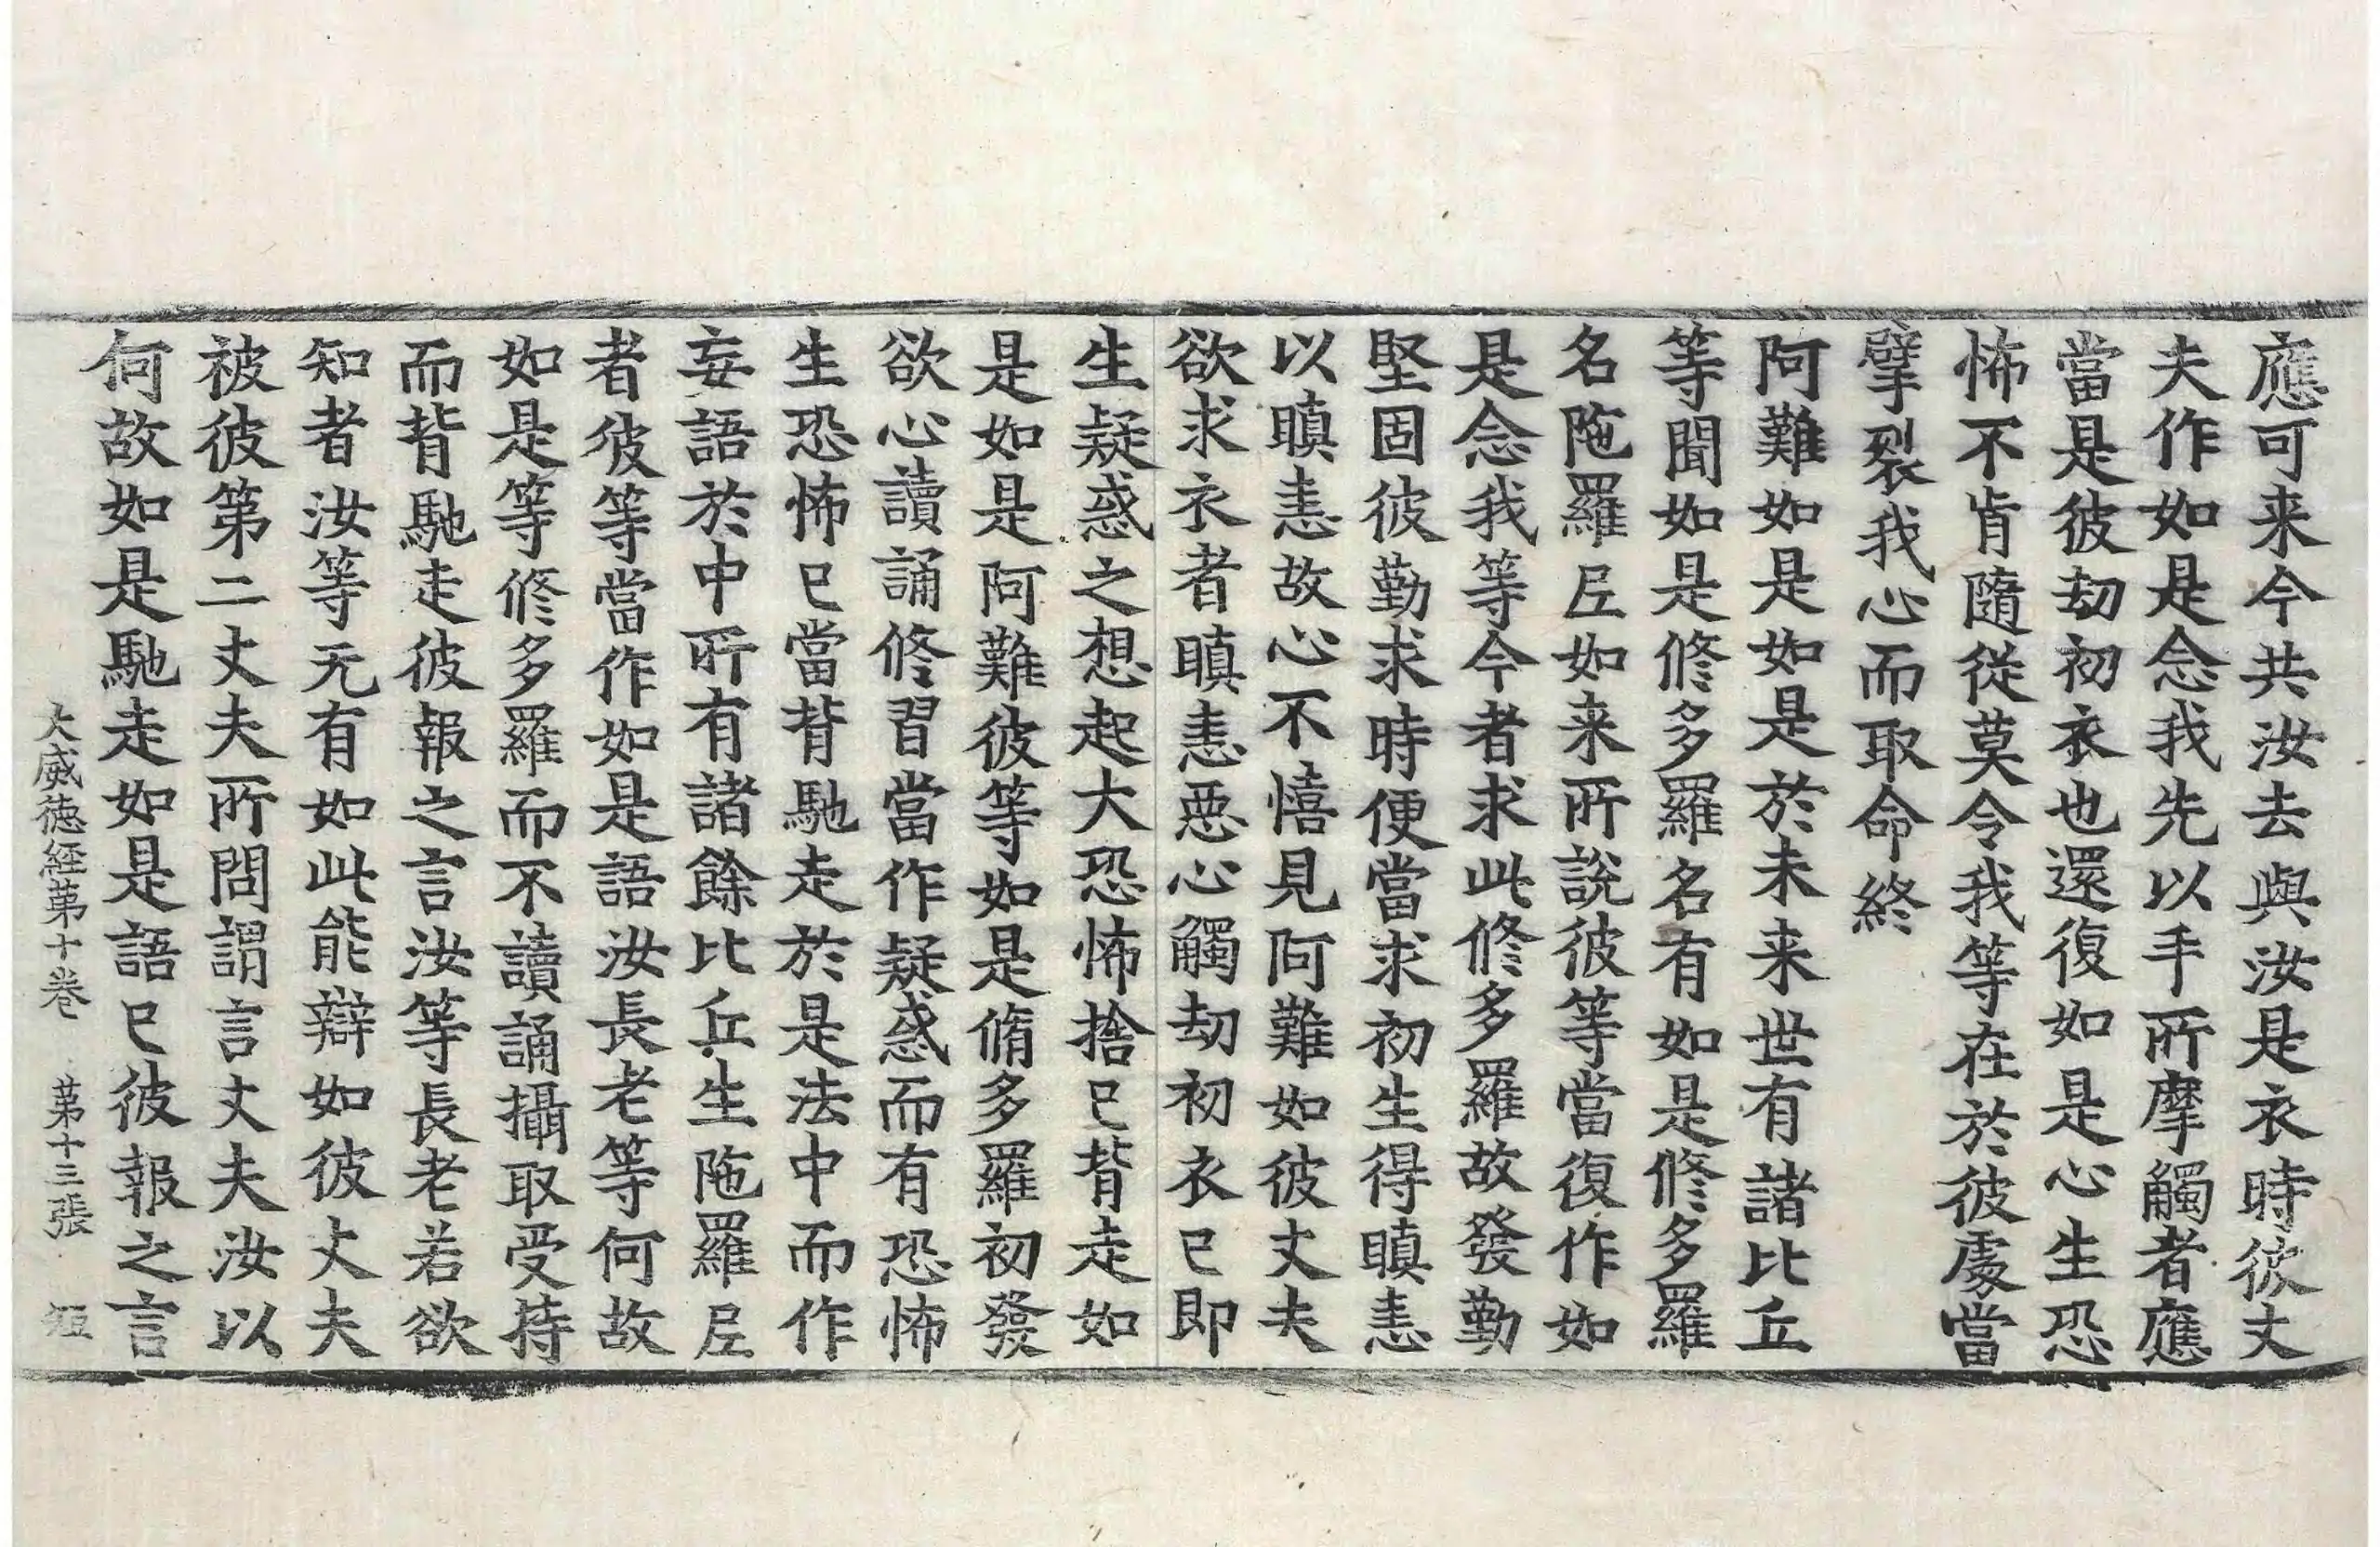 應可来今共汝去與汝是衣時彼丈
夫作如是念我先以手所摩觸者應
當是彼劫初衣也還復如是心生恐
怖不肯隨從莫令我等在於彼處當
擘裂我心而取命終
阿難如是如是於未来世有諸比丘
等聞如是修多羅名有如是修多羅
名陁羅𡰱如来所說彼等當復作如
是念我等今者求此修多羅故發勤
堅固彼勤求時便當求初生得瞋恚
以瞋恚故心不憘見阿難如彼丈夫
欲求衣者瞋恚惡心觸劫初衣已即
生疑惑之想起大恐怖捨已背走如
是如是阿難彼等如是脩多羅初發
欲心讀誦修習當作疑惑而有恐怖
生恐怖已當背馳走於是法中而作
妄語於中所有諸餘比丘生陁羅𡰱
者彼等當作如是語汝長老等何故
如是等修多羅而不讀誦攝取受持
而背馳走彼報之言汝等長老若欲
知者汝等无有如此能辯如彼丈夫
被彼第二丈夫所問謂言丈夫汝以
何故如是馳走如是語已彼報之言
大威徳経第十卷 第十三張 短